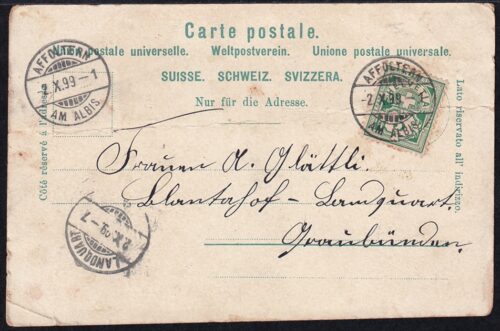 Carte postale.
Unione postale universale. Weltpostverein. Union postale universelle.
SUISSE. SCHWEIZ. SVIZZERA.
Nur für die Adresse.
Côté réservé à l'adresse.
Lato riservato all' indirizzo.
AFFOLTERN
2.X.99 – 1
AM ALBIS
AFFOLTERN
-2.X.99
AM ALBIS
Frauen A. Glättli.
Plantahof – Landquart.
Graubünden.
LANDQUART
2.X.99-7